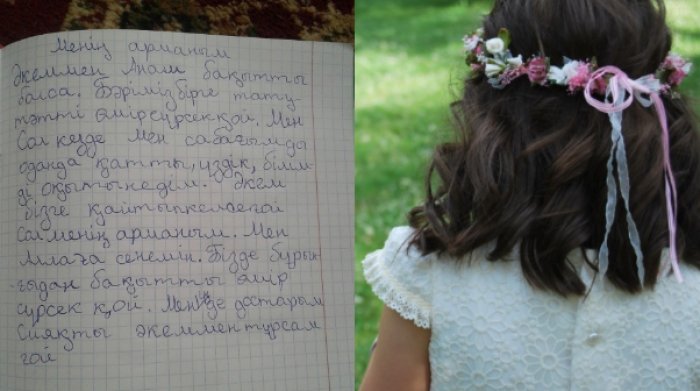 Менің арманым
Әкеммен Анам бақытты
болса. Бәріміз бірге тату
тәтті өмір сүрсек қой. Мен
Сол кезде мен сабағымды
оданда қатты, үздік, білім
ді оқытын едім. Әкем
бізге қайтып келсе ғой
сол менің арманым. Мен
Аллаға сенемін. Бізде бұрын
-ғыдан бақытты өмір
сүрсек қой. Мен де достарым
Сияқты әкеммен тұрсам
ғой